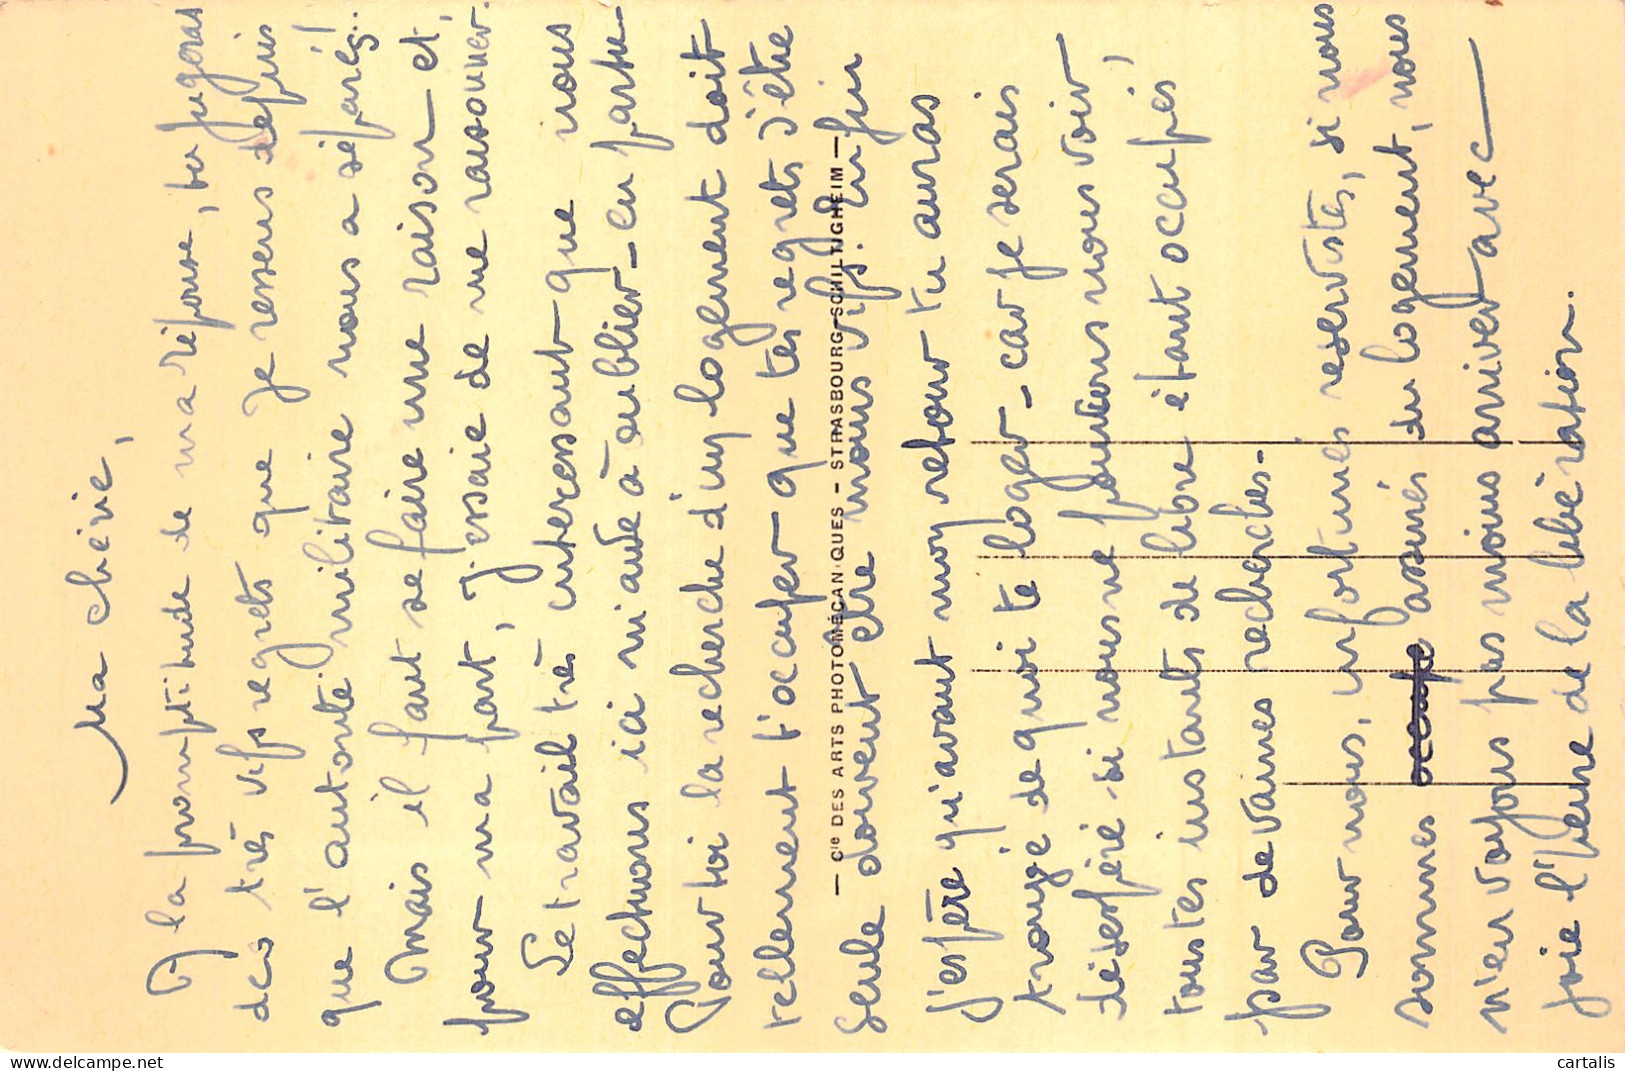 Ma chérie,
A la promptitude de ma réponse, tu jugeras
des très vifs regrets que je ressens depuis
que l'autorité militaire nous a séparés!
Mais il faut se faire une raison et,
pour ma part, j'essaie de me raisonner.
Le travail très intéressant que nous
effectuons ici m'aide à oublier - en partie -
Pour toi la recherche d'un logement doit
tellement t'occuper que tes regrets d'être
seule doivent être moins vifs. Enfin
j'espère qu'avant mon retour tu auras
trouvé de quoi te loger - car je serais
désespéré si nous ne pouvions nous voir,
tous tes instants de libre étant occupés
par de vaines recherches -
Pour nous, infortunés réservistes, si nous
sommes assurés du logement, nous
n'en voyons pas moins arriver avec
joie l'heure de la libération.
— Cie DES ARTS PHOTOMÉCANIQUES - STRASBOURG-SCHILTIGHEIM —
cartalis